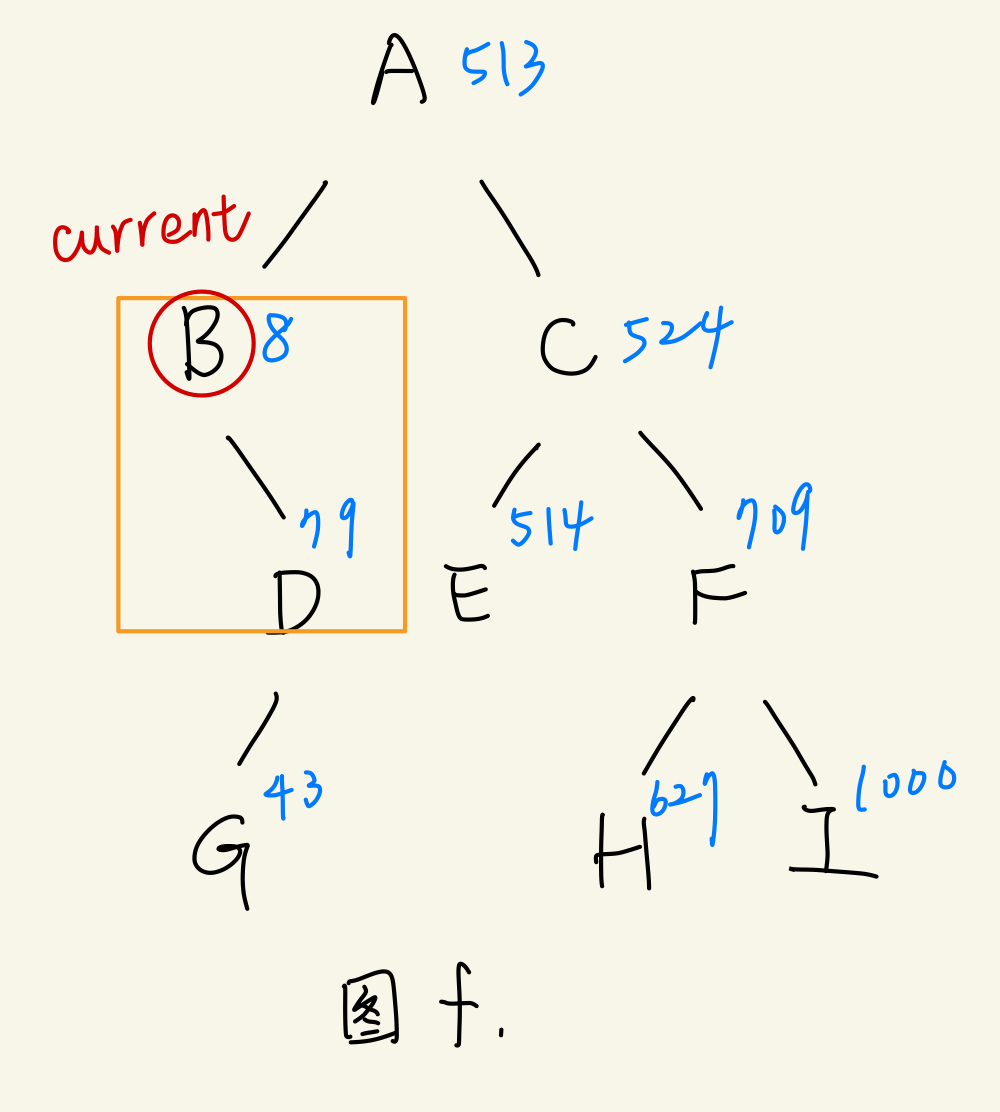 A 513
current
B 8
C 524
79
514
709
D
E
F
43
627
1000
G
H
I
图 f.